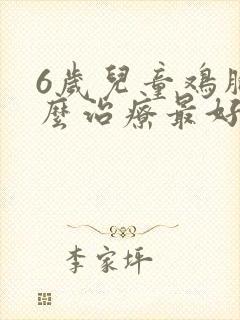 6歲兒童鸡胸
麼治療最好
李家坪